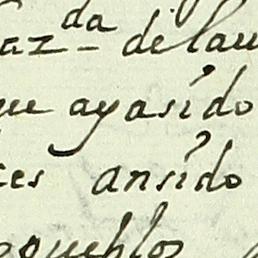 az da de lau
ue ayasido
es ansido
pueblos